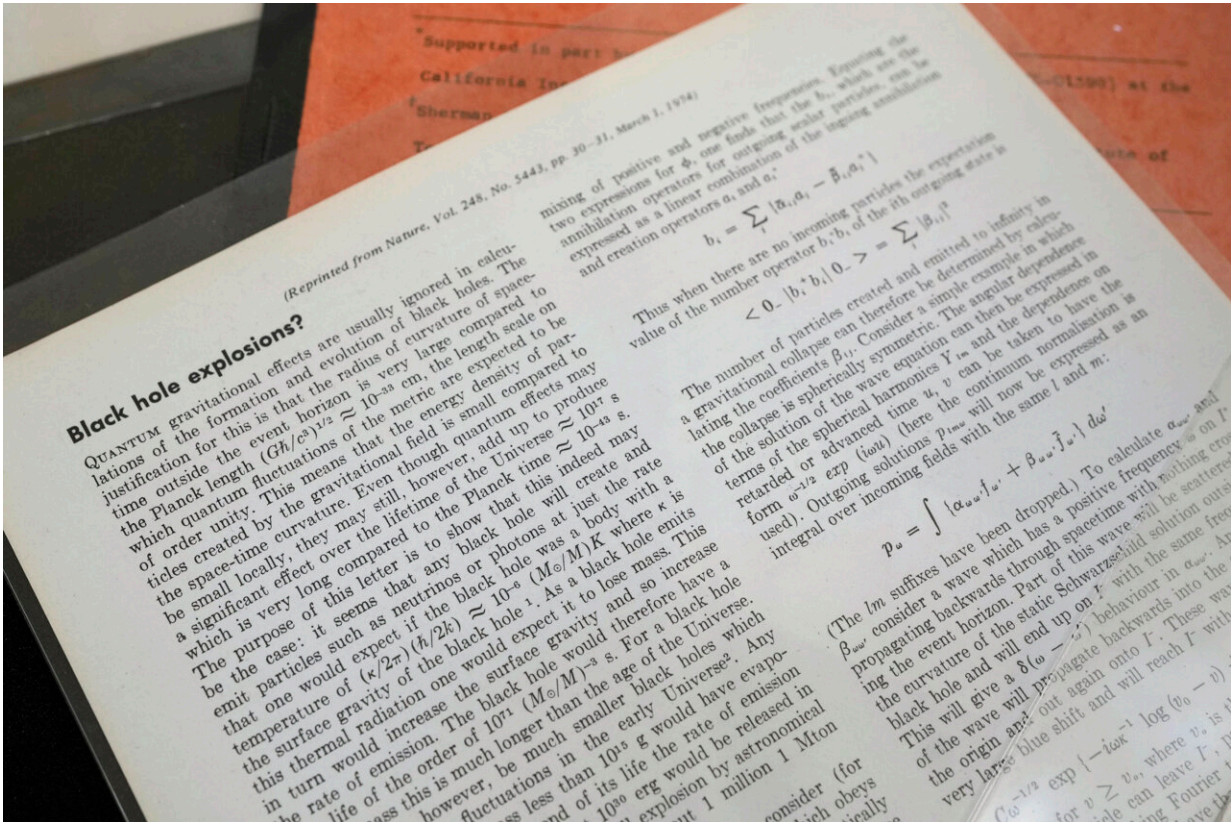 *Supported in part
California
at the
Sherman
of
(Reprinted from Nature, Vol. 248, No. 5443, pp. 30–31, March 1, 1974)
Black hole explosions?
QUANTUM gravitational effects are usually ignored in calcu-
lations of the formation and evolution of black holes. The
justification for this is that the radius of curvature of space-
time outside the event horizon is very large compared to
the Planck length (Għ/c³)¹/² ≈ 10⁻³³ cm, the length scale on
which quantum fluctuations of the metric are expected to be
of order unity. This means that the energy density of par-
ticles created by the gravitational field is small compared to
the space-time curvature. Even though quantum effects may
be small locally, they may still, however, add up to produce
a significant effect over the lifetime of the Universe ≈ 10¹⁷ s
which is very long compared to the Planck time ≈ 10⁻⁴³ s.
The purpose of this letter is to show that this indeed may
be the case: it seems that any black hole will create and
emit particles such as neutrinos or photons at just the rate
that one would expect if the black hole was a body with a
temperature of (κ/2π) (ħ/2k) ≈ 10⁻⁶ (M⊙/M)K where κ is
the surface gravity of the black hole¹. As a black hole emits
this thermal radiation one would expect it to lose mass. This
in turn would increase the surface gravity and so increase
the rate of emission. The black hole would therefore have a
life of the order of 10⁷¹ (M⊙/M)⁻³ s. For a black hole
this is much longer than the age of the Universe.
however, be much smaller black holes which
fluctuations in the early Universe². Any
less than 10¹⁵ g would have evapo-
of its life the rate of emission
10³⁰ erg would be released in
explosion by astronomical
1 million 1 Mton
consider (for
which obeys
mixing of positive and negative frequencies. Equating the
two expressions for ϕ, one finds that the bᵢ, which are the
annihilation operators for outgoing scalar particles, can be
expressed as a linear combination of the ingoing annihilation
and creation operators aᵢ and aᵢ⁺
bᵢ = ∑ {ᾱᵢⱼaᵢ − β̄ᵢⱼaᵢ⁺}
Thus when there are no incoming particles the expectation
value of the number operator bᵢ⁺bᵢ of the ith outgoing state is
< 0₋ |bᵢ⁺bᵢ| 0₋ > = ∑ |βᵢⱼ|²
The number of particles created and emitted to infinity in
a gravitational collapse can therefore be determined by calcu-
lating the coefficients βᵢⱼ. Consider a simple example in which
the collapse is spherically symmetric. The angular dependence
of the solution of the wave equation can then be expressed in
terms of the spherical harmonics Yₗₘ and the dependence on
retarded or advanced time u, v can be taken to have the
form ω⁻¹/² exp (iωu) (here the continuum normalisation is
used). Outgoing solutions pₗₘω will now be expressed as an
integral over incoming fields with the same l and m:
pω = ∫ {αωω' fω' + βωω' f̄ω'} dω'
(The lm suffixes have been dropped.) To calculate αωω' and
βωω' consider a wave which has a positive frequency ω on
propagating backwards through spacetime with nothing
ing the event horizon. Part of this wave will be
the curvature of the static Schwarzschild solution
black hole and will end up on with the same
This will give a δ(ω − ) behaviour in αωω'.
of the wave will propagate backwards into the
the origin and out again onto I⁻. These
very large blue shift and will reach I⁻
Cω⁻¹/² exp {−iωκ⁻¹ log (v₀ − v)
for v ≥ v₀, where v₀ is
can leave I⁻,
Fourier